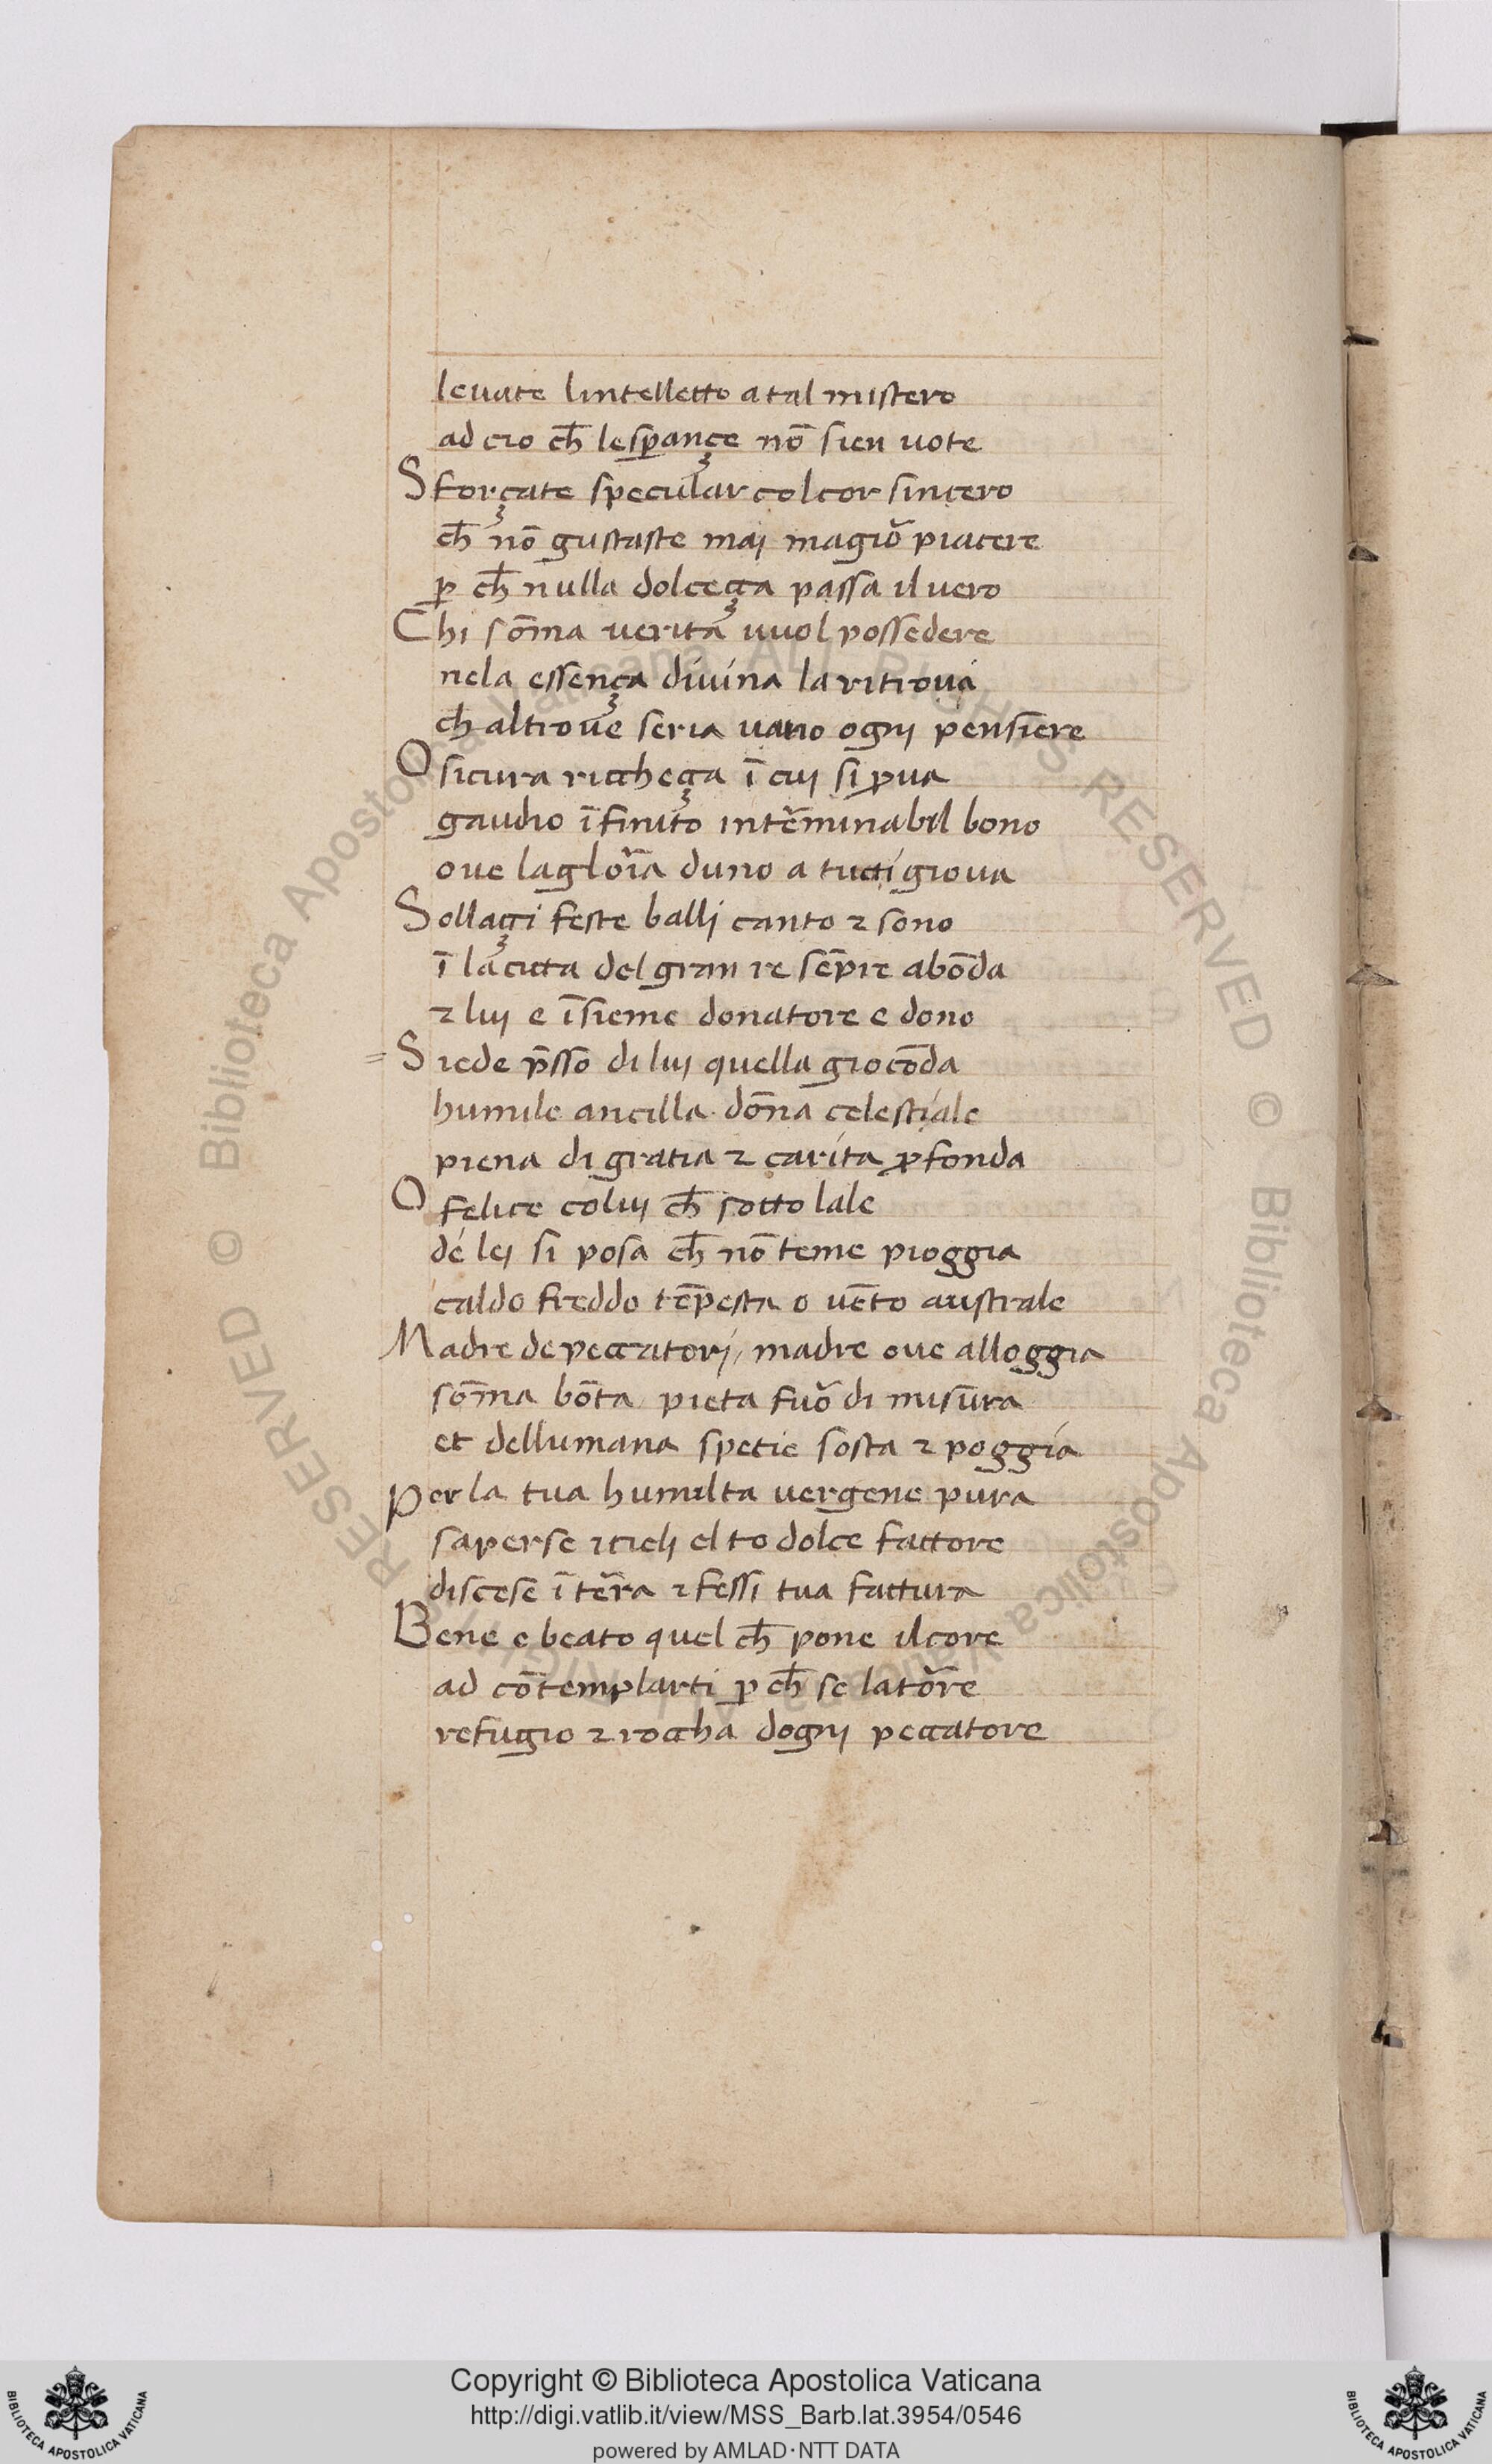 leuate lintelletto a tal mistero
ad cio ch̄ lesꝑançe nō sien uote
Sforçate specular col cor sincero
ch̄ nō gustaste maj magiō piacere
ꝑ ch̄ nulla dolceçça passa il uero
Chi sōma uerita uuol possedere
nela essença diuina la ritroua
ch̄ altroue seria uano ognj pensiere
O sicura riccheçça ī cuj si ꝓua
gaudio īfinito intēminabil bono
oue la glōia duno a tutti gioua
Sollaççi feste ballj canto ⁊ sono
ī la citta del gran re sēpre abōda
⁊ luj e īsieme donatore e dono
= Siede p̄sso di luj quella giocōda
humile ancilla dōna celestiale
piena di gratia ⁊ carita ꝓfonda
O felice coluj ch̄ sotto lale
de lej si posa ch̄ nō teme pioggia
caldo freddo tēpesta o uēto australe
Madre de peccatorj / madre oue alloggia
sōma bōta pieta fuō di misura
et dellumana spetie sosta ⁊ poggia
Per la tua humilta uergene pura
saperse i cielj el to dolce fattore
discese ī tēra ⁊ fessi tua fattura
Bene e beato quel ch̄ pone il core
ad cōtemplarti ꝑ ch̄ se la tōre
refugio ⁊ roccha dognj peccatore
Copyright © Biblioteca Apostolica Vaticana
http://digi.vatlib.it/view/MSS_Barb.lat.3954/0546
powered by AMLAD·NTT DATA
BIBLIOTECA APOSTOLICA VATICANA
BIBLIOTECA APOSTOLICA VATICANA